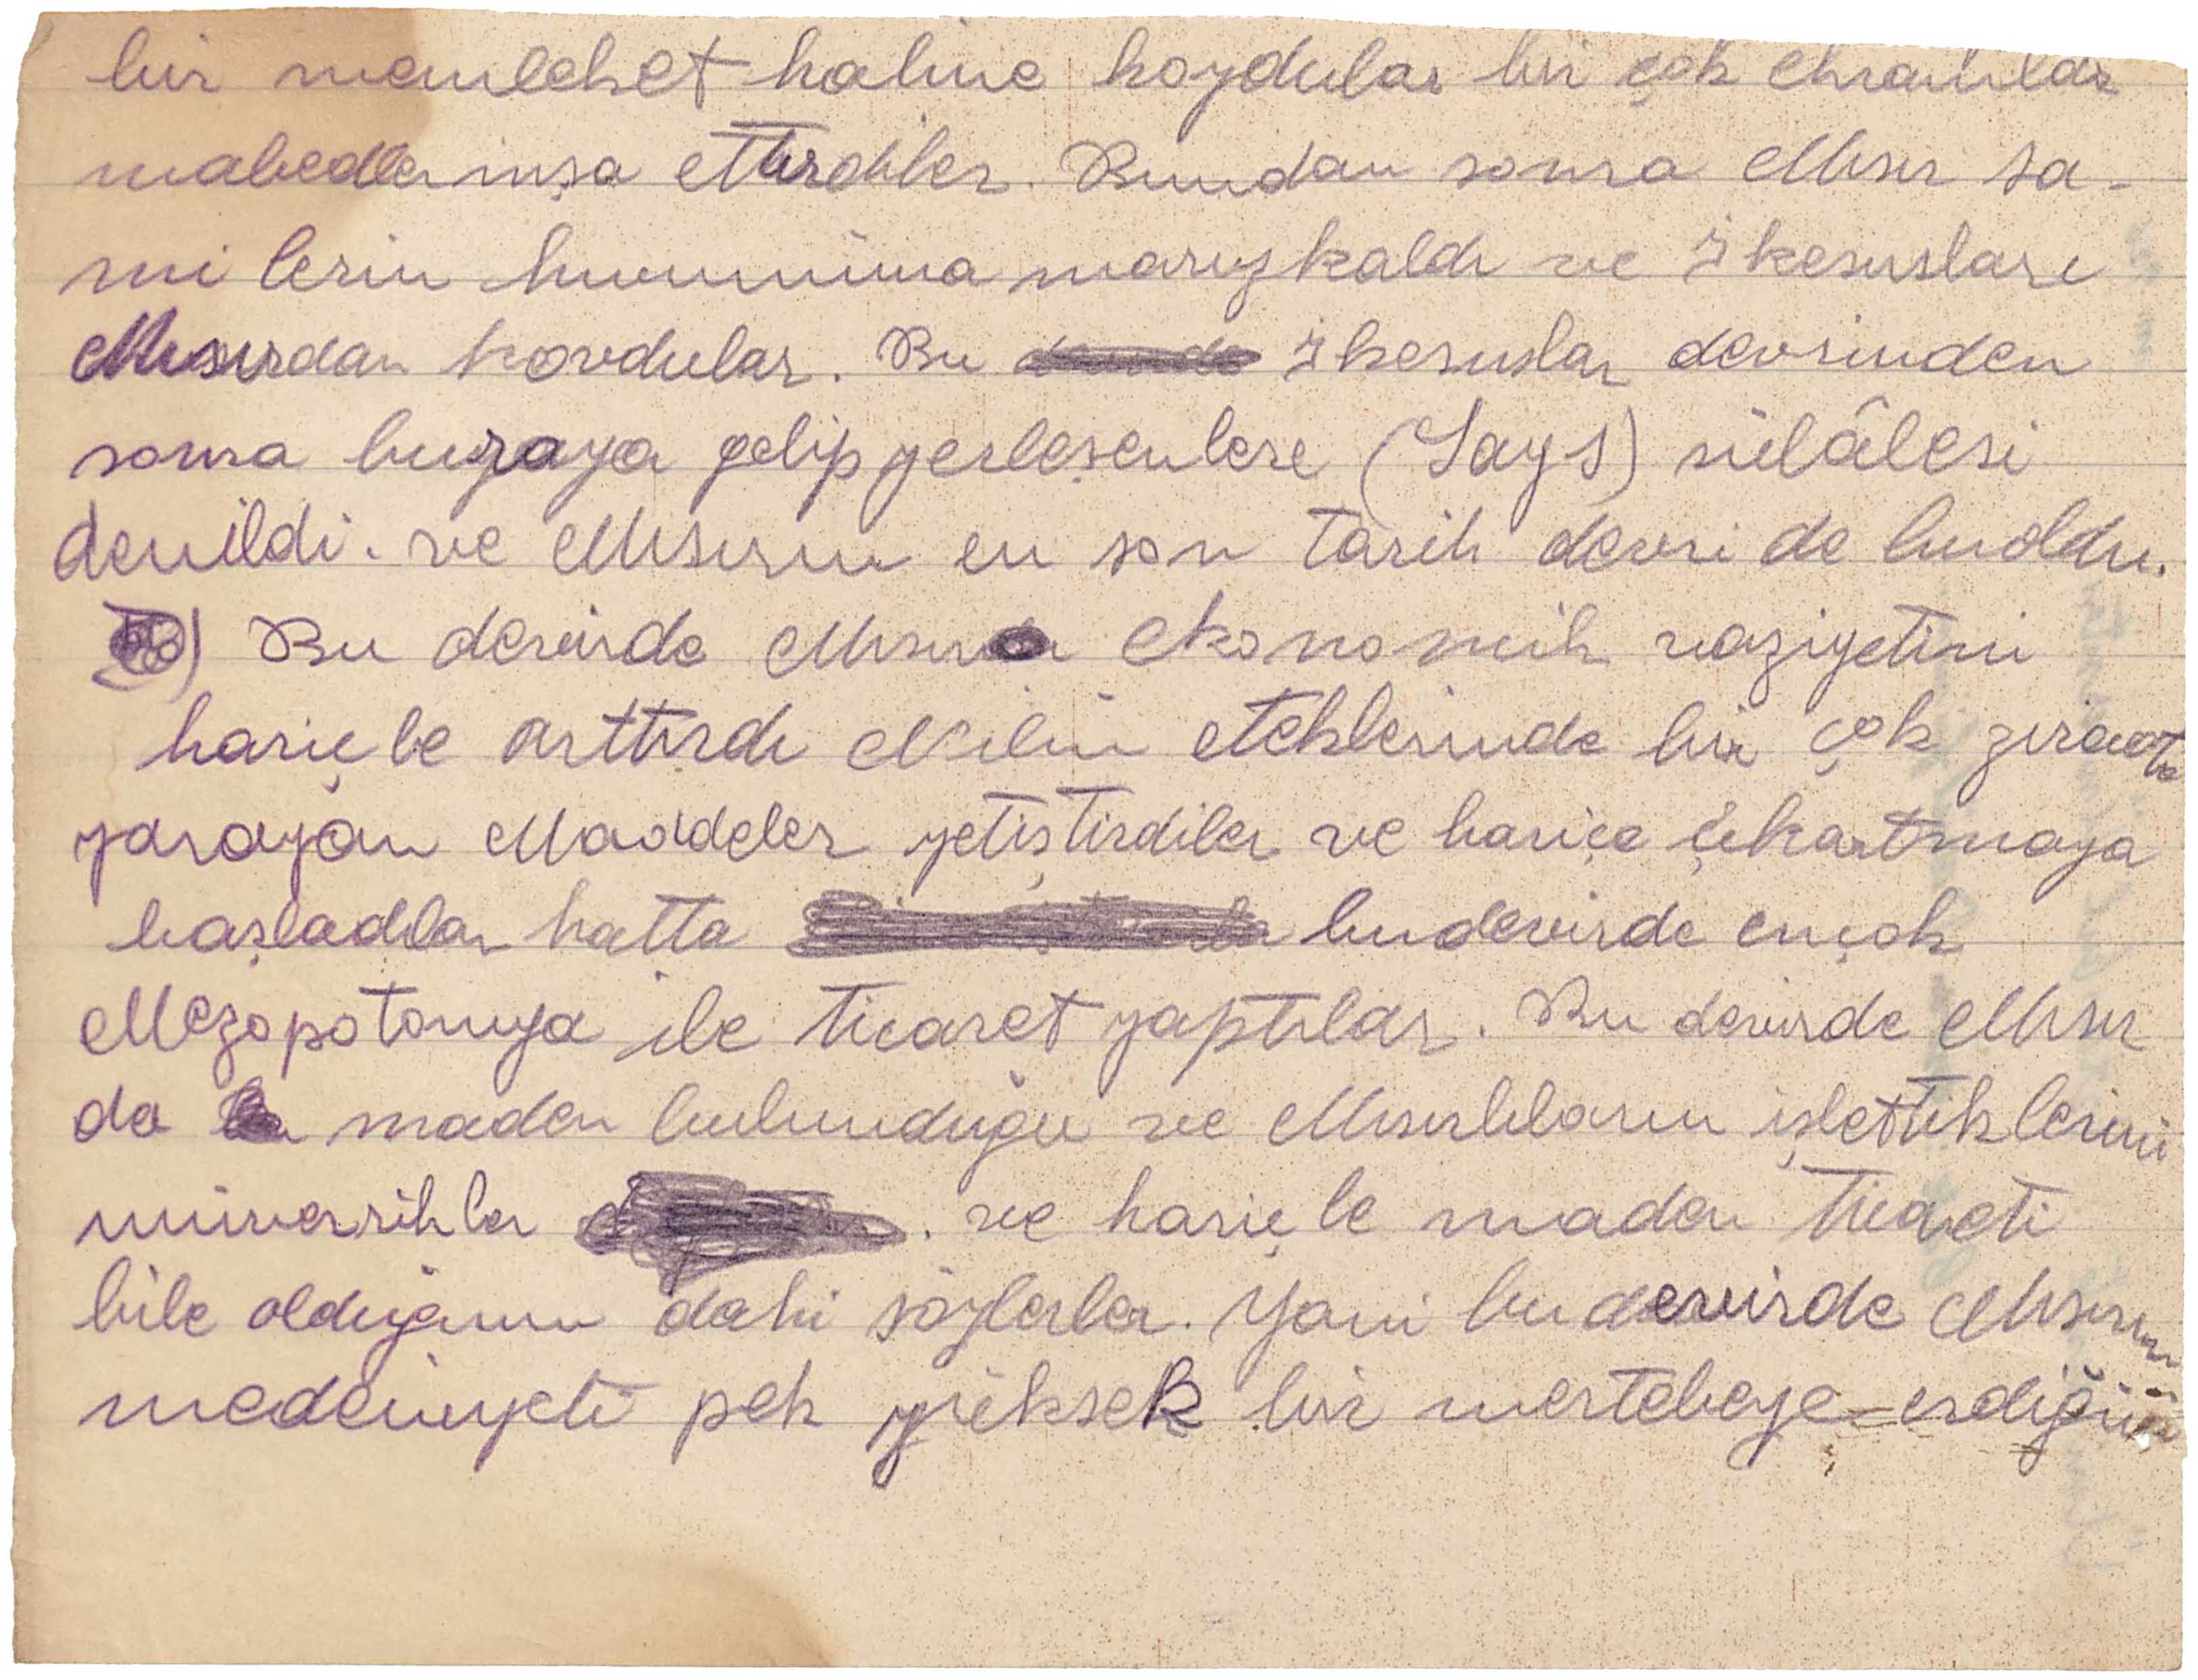 bir memleket haline koydular bir çok ehramlar
mabedler inşa ettirdiler. Bundan sonra Mısır sa-
mi lerin hücumuna maruz kaldı ve İkesusları
Mısırdan kovdular. Bu İkesuslar devrinden
sonra buraya gelip yerleşenlere (Says) sülâlesi
denildi. ve Mısırın en son tarih devri de bu oldu.
Bu devirde Mısır ekonomik vaziyetini
hariçle arttırdı Nilin eteklerinde bir çok ziraate
yarayan Maddeler yetiştirdiler ve harice çıkartmaya
başladılar hatta bu devirde en çok
Mezopotamya ile ticaret yaptılar. Bu devirde Mısır
da maden bulunduğu ve Mısırlıların işlettiklerini
müverrihler . ve hariçle maden ticareti
bile olduğunu dahi söylerler. Yani bu devirde Mısırın
medeniyeti pek yüksek bir mertebeye erdiğini